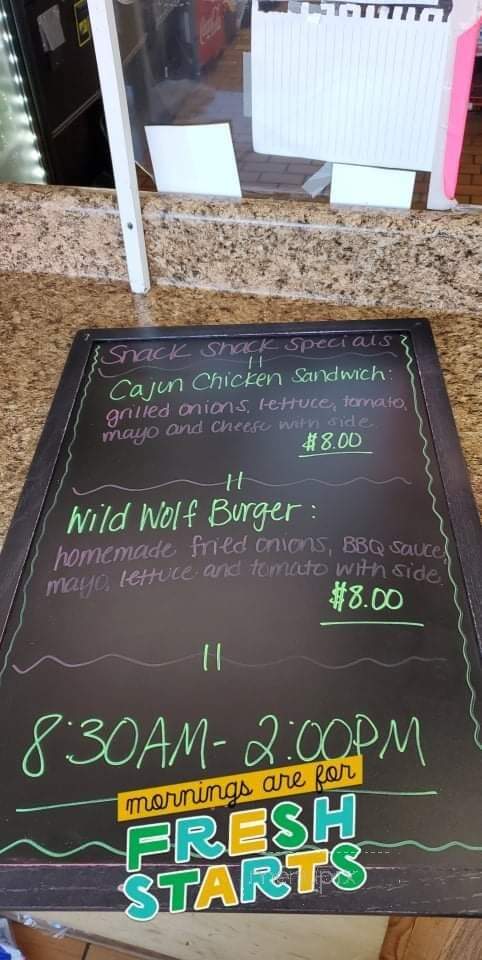 Snack Shack Specials
Cajun Chicken Sandwich:
grilled onions, lettuce, tomato,
mayo and cheese with side.
$8.00
Wild Wolf Burger:
homemade fried onions, BBQ sauce,
mayo, lettuce and tomato with side.
$8.00
8:30AM-2:00PM
mornings are for
FRESH
STARTS